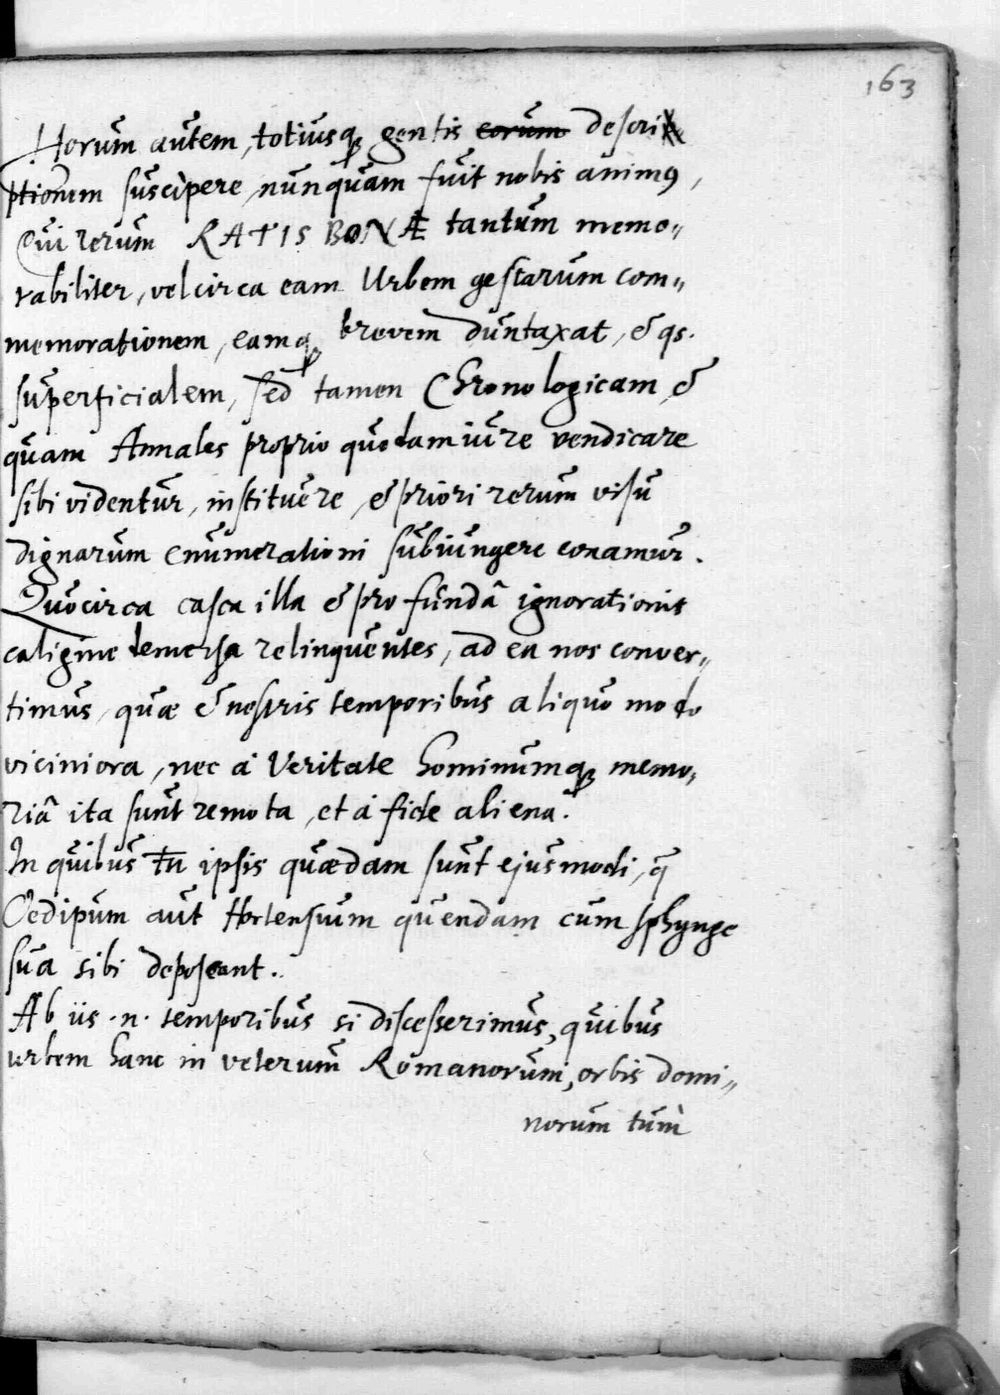 163
Horum autem, totiusq; gentis eorum descri
ptionem suscipere, nunquam fuit nobis animus,
Qui rerum RATISBONÆ tantum memo„
rabiliter, vel circa eam Urbem gestarum com„
memorationem, eamq; brevem duntaxat, & qs.
superficialem, sed tamen Chronologicam, &
quam Annales proprio quodam iure vendicare
sibi videntur, instituere, & priori rerum visu
dignarum enumerationi subiungere conamur.
Quocirca casca illa & profundâ ignorationis
caligine demersa relinquentes, ad ea nos conver„
timus, quæ & nostris temporibus aliquo modo
viciniora, nec à Veritate hominumq; memo„
riâ ita sunt remota, et à fide aliena.
In quibus tn̄ ipsis quædam sunt ejusmodi, q̄
Oedipum aut Hortensium quendam cum sphynge
sua sibi deposcant.
Ab iis .n. temporibus si discesserimus, quibus
urbem hanc in veterum Romanorum, orbis domi„
norum tum